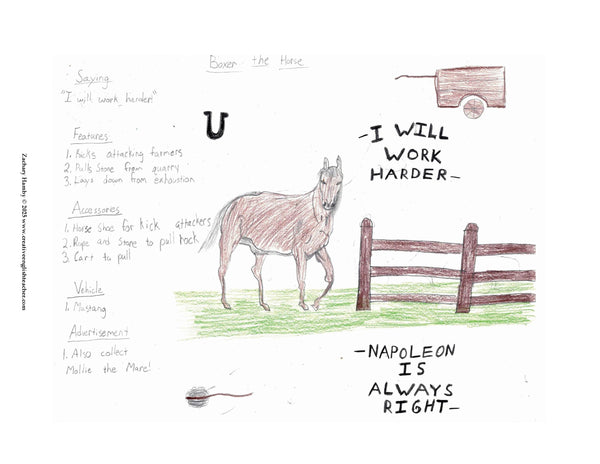 Boxer the Horse
Saying
"I will work harder!"
Features
1. Kicks attacking farmers
2. Pulls Stone from quarry
3. Lays down from exhaustion
Accessories
1. Horse Shoe for kick attackers
2. Rope and Stone to pull rock
3. Cart to pull
Vehicle
1. Mustang
Advertisement
1. Also collect
Mollie the Mare!
-I WILL
WORK
HARDER-
-NAPOLEON
IS
ALWAYS
RIGHT-
Zachary Hamby © 2023 www.creativeenglishteacher.com